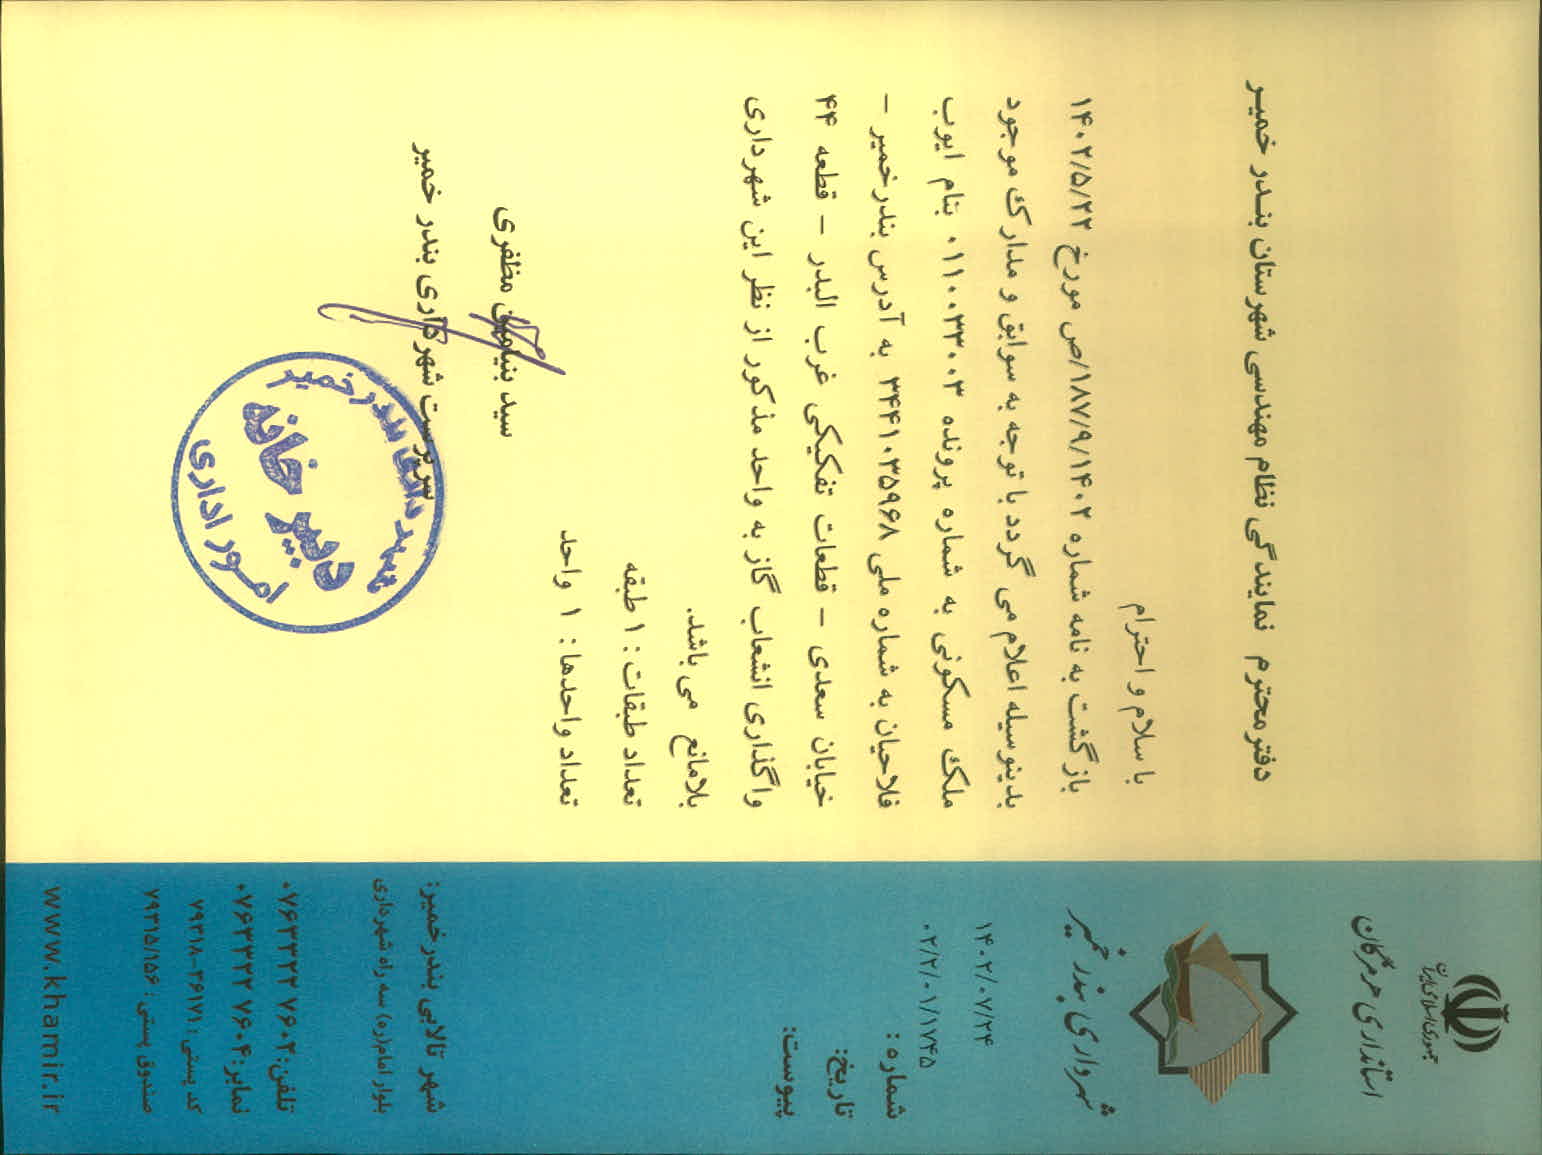 جمهوری اسلامی ایران
استانداری هرمزگان
شهرداری بندر خمیر
۱۴۰۲/۰۷/۲۴
۰۲/۲/۰۱/۱۷۴۵
شماره :
تاریخ:
پیوست:
دفتر محترم نمایندگی نظام مهندسی شهرستان بندر خمیر
با سلام و احترام
بازگشت به نامه شماره ۱۸۷/۹/۱۴۰۲/ص مورخ ۱۴۰۲/۵/۲۲
بدینوسیله اعلام می گردد با توجه به سوابق و مدارک موجود
ملک مسکونی به شماره پرونده ۰۱۱۰۰۳۳۰۰۳ بنام ایوب
فلاحیان به شماره ملی ۳۴۴۱۰۳۵۹۶۸ به آدرس بندرخمیر -
خیابان سعدی - قطعات تفکیکی غرب البدر - قطعه ۴۴
واگذاری انشعاب گاز به واحد مذکور از نظر این شهرداری
بلامانع می باشد.
تعداد طبقات : ۱ طبقه
تعداد واحدها : ۱ واحد
سید بنیامین مظفری
سرپرست شهرداری بندر خمیر
شهرداری بندر خمیر
دبیرخانه
امور اداری
شهر تالابی بندرخمیر:
بلوار امام(ره) سه راه شهرداری
تلفن: ۰۷۶۳۳۲۲ ۷۶۰۲
نمابر: ۰۷۶۳۳۲۲ ۷۶۰۴
کد پستی : ۳۶۱۷۱-۷۹۳۱۸
صندوق پستی : ۷۹۳۱۵/۱۵۶
www.khamir.ir